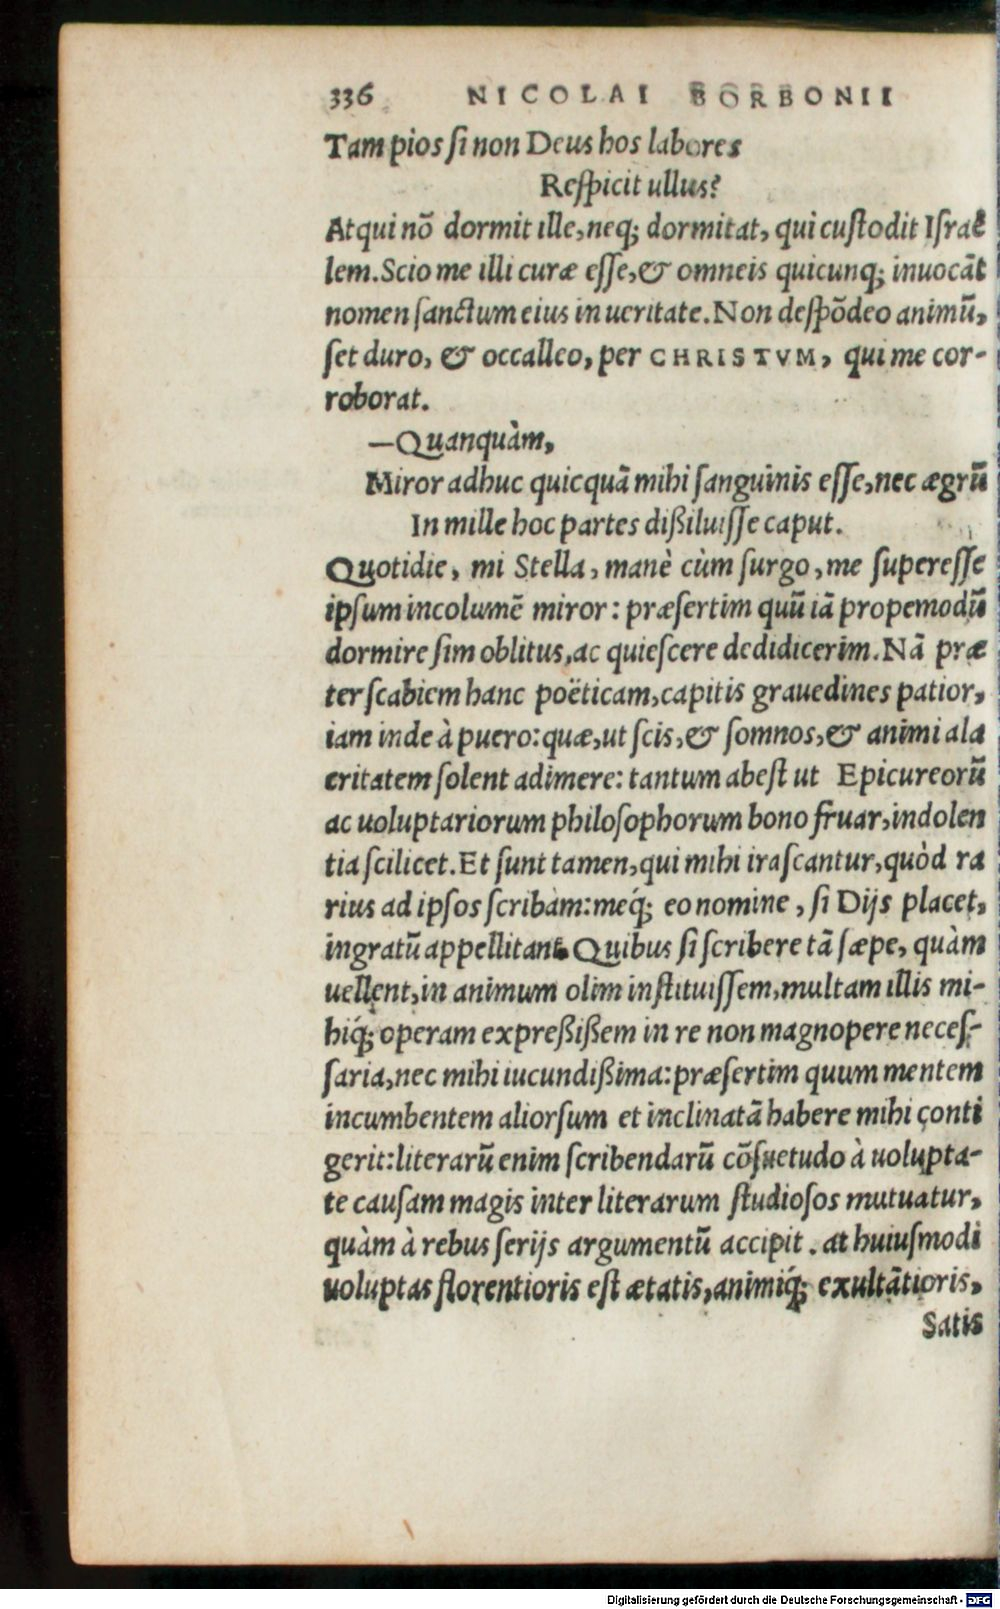 336 NICOLAI BORBONII
Tam pios ſi non Deus hos labores
Reſpicit ullus?
Atqui nõ dormit ille, neq; dormitat, qui cuſtodit Iſraë
lem. Scio me illi curæ eſſe, & omneis quicunq; inuocãt
nomen ſanctum eius in ueritate. Non deſpõdeo animũ,
ſet duro, & occalleo, per CHRISTVM, qui me cor-
roborat.
—Quanquàm,
Miror adhuc quicquã mihi ſanguinis eſſe, nec ægrũ
In mille hoc partes dißiluiſſe caput.
Quotidie, mi Stella, manè cùm ſurgo, me ſupereſſe
ipſum incolumẽ miror: præſertim quũ iã propemodũ
dormire ſim oblitus, ac quieſcere dedidicerim. Nã præ
ter ſcabiem hanc poëticam, capitis grauedines patior,
iam inde à puero: quæ, ut ſcis, & ſomnos, & animi ala
critatem ſolent adimere: tantum abeſt ut Epicureorũ
ac uoluptariorum philoſophorum bono fruar, indolen
tia ſcilicet. Et ſunt tamen, qui mihi iraſcantur, quòd ra
rius ad ipſos ſcribam: meq́; eo nomine, ſi Dijs placet,
ingratũ appellitant. Quibus ſi ſcribere tã ſæpe, quàm
uellent, in animum olim inſtituiſſem, multam illis mi-
hiq́; operam expreßißem in re non magnopere neceſ-
ſaria, nec mihi iucundißima: præſertim quum mentem
incumbentem aliorſum et inclinatã habere mihi conti
gerit: literarũ enim ſcribendarũ cõſuetudo à uolupta-
te cauſam magis inter literarum ſtudioſos mutuatur,
quàm à rebus ſerijs argumentũ accipit. at huiuſmodi
uoluptas florentioris eſt ætatis, animiq́; exultãtioris,
Satis
Digitalisierung gefördert durch die Deutsche Forschungsgemeinschaft - DFG